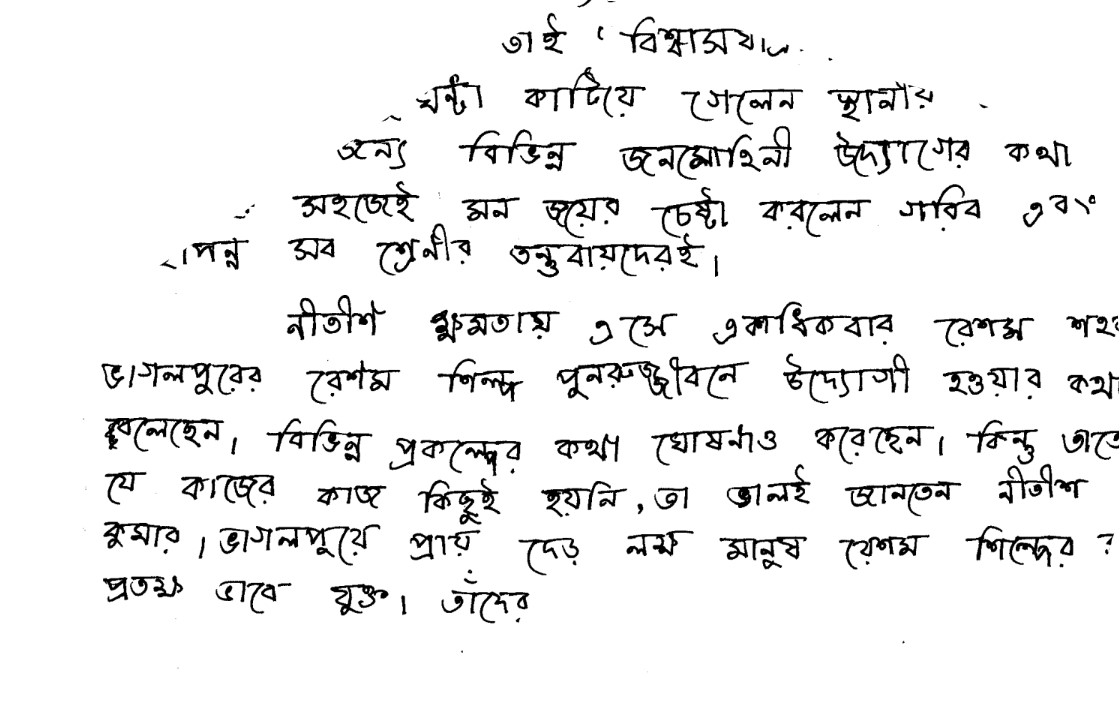 তাই
ঘন্টা কাটিয়ে গেলেন স্থানীয়
অন্য বিভিন্ন জনমোহিনী উদ্যোগের কথা
সহজেই মন জয়ের চেষ্টা করলেন গরিব এবং
সব শ্রেনীর তন্তুবায়দেরই।
নীতীশ ক্ষমতায় এসে একাধিকবার রেশম
ভাগলপুরের রেশম শিল্প পুনরুজ্জীবনে উদ্যোগী হওয়ার কথা
বলেছেন। বিভিন্ন প্রকল্পের কথা ঘোষনাও করেছেন। কিন্তু তাতে
যে কাজের কাজ কিছুই হয়নি, তা ভালই জানতেন নীতীশ
কুমার। ভাগলপুরে প্রায় দেড় লক্ষ মানুষ রেশম শিল্পের
প্রতক্ষ ভাবে যুক্ত। তাঁদের